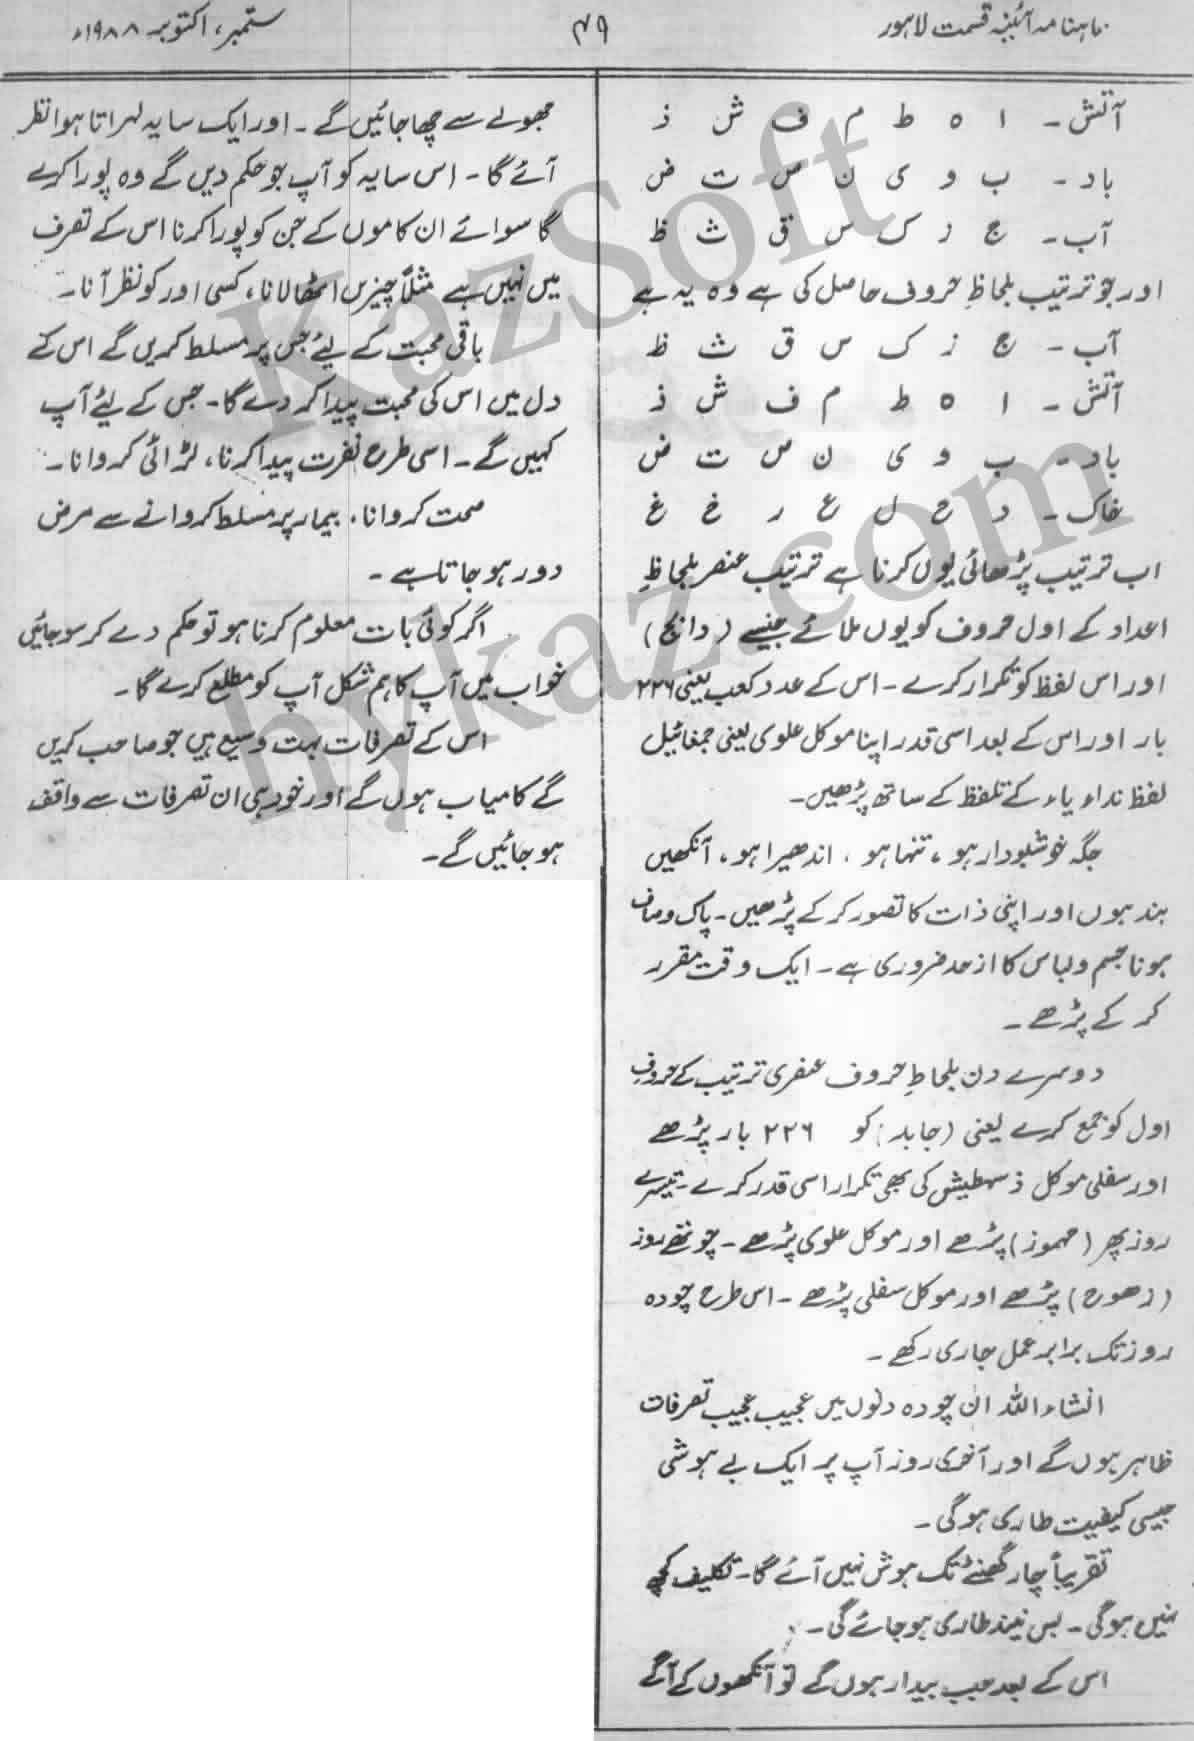 ماہنامہ آئینہ قسمت لاہور
۴۹
ستمبر، اکتوبر ۱۹۸۸ء
آتش ۔ ا ہ ط م ف ش ذ
باد ۔ ب و ی ن ص ت ض
آب ۔ ج ز ک س ق ث ظ
اور جو ترتیب بلحاظِ حروف حاصل کی ہے وہ یہ ہے
آب ۔ ج ز ک س ق ث ظ
آتش ۔ ا ہ ط م ف ش ذ
باد ۔ ب و ی ن ص ت ض
خاک ۔ د ح ل ع ر خ غ
اب ترتیب پڑھائی یوں کرنا ہے ترتیب عنصر بلحاظِ
اعداد کے اول حروف کو یوں ملائے جیسے (دابج)
اور اس لفظ کو تکرار کرے ۔ اس کے عدد کعب یعنی ۲۲۶
بار اور اس کے بعد اسی قدر اپنا موکل علوی یعنی جمغائیل
لفظ نداء یاء کے تلفظ کے ساتھ پڑھیں۔
جگہ خوشبودار ہو ، تنہا ہو ، اندھیرا ہو، آنکھیں
بند ہوں اور اپنی ذات کا تصور کر کے پڑھیں ۔ پاک و صاف
ہونا جسم و لباس کا از حد ضروری ہے ۔ ایک وقت مقرر
کر کے پڑھے ۔
دوسرے دن بلحاظِ حروف عنصری ترتیب کے حروفِ
اول کو جمع کرے یعنی (جابد) کو ۲۲۶ بار پڑھے
اور سفلی موکل ذسہطیش کی بھی تکرار اسی قدر کرے ۔ تیسرے
روز پھر (حہموز) پڑھے اور موکل علوی پڑھے ۔ چوتھے روز
(زھوح) پڑھے اور موکل سفلی پڑھے ۔ اس طرح چودہ
روز تک برابر عمل جاری رکھے ۔
انشاء اللہ ان چودہ دنوں میں عجیب عجیب تصرفات
ظاہر ہوں گے اور آخری روز آپ پر ایک بے ہوشی
جیسی کیفیت طاری ہوگی ۔
تقریباً چار گھنٹے تک ہوش نہیں آئے گا ۔ تکلیف کچھ
نہیں ہوگی ۔ بس نیند طاری ہو جائے گی ۔
اس کے بعد جب بیدار ہوں گے تو آنکھوں کے آگے
جھولے سے چھا جائیں گے ۔ اور ایک سایہ لہراتا ہوا نظر
آئے گا ۔ اس سایہ کو آپ جو حکم دیں گے وہ پورا کرے
گا سوائے ان کاموں کے جن کو پورا کرنا اس کے تصرف
میں نہیں ہے مثلاً چیزیں اٹھا لانا، کسی اور کو نظر آنا ۔
باقی محبت کے لیئے جس پر مسلط کریں گے اس کے
دل میں اس کی محبت پیدا کر دے گا ۔ جس کے لیئے آپ
کہیں گے ۔ اسی طرح نفرت پیدا کرنا ، لڑائی کروانا ۔
صحت کروانا ، بیمار پر مسلط کروانے سے مرض
دور ہو جاتا ہے ۔
اگر کوئی بات معلوم کرنا ہو تو حکم دے کر سو جائیں
خواب میں آپ کا ہم شکل آپ کو مطلع کرے گا ۔
اس کے تصرفات بہت وسیع ہیں جو صاحب کریں
گے کامیاب ہوں گے اور خود ہی ان تصرفات سے واقف
ہو جائیں گے ۔
KazSoft
hykaz.com